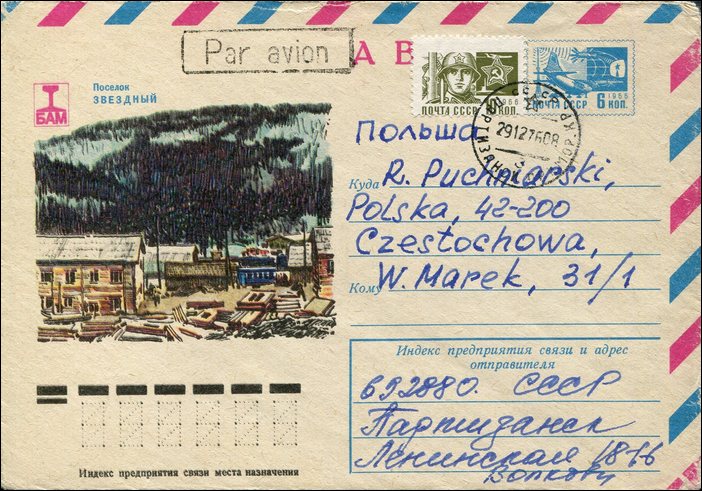 Par avion
А В
Поселок
ЗВЕЗДНЫЙ
БАМ
ПОЧТА СССР
1966
ПОЧТА СССР
1966
6 КОП.
29127608
Польша
Куда
R. Puchniarski,
Polska, 42-200
Czestochowa,
Кому
W. Marek, 31/1
Индекс предприятия связи и адрес отправителя
692880. СССР
Партизанск
Ленинская 18-76
Волкову
Индекс предприятия связи места назначения